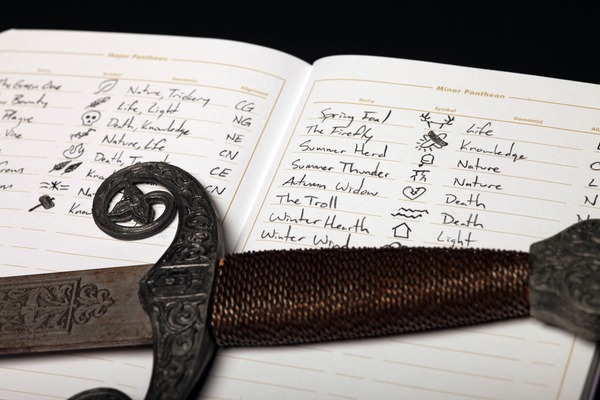 Major Pantheon
Deity Symbol Domains Alignment
The Green One Nature, Trickery CG
Bounty Life, Light NG
Plague Death, Knowledge NE
Vine Nature, Life CN
Death, CE
CN
Minor Pantheon
Deity Symbol Domain(s)
Spring Foal Life
The Firefly Knowledge
Summer Herd Nature
Summer Thunder Nature
Autumn Widow Death
The Troll Death
Winter Hearth Light
Winter Wind